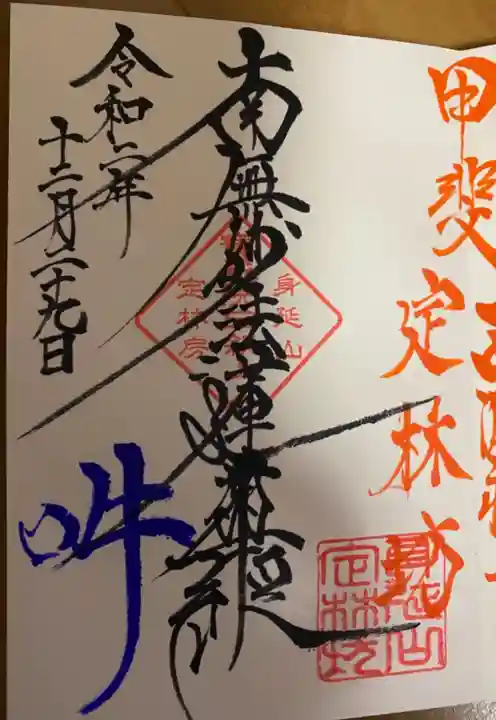 甲斐
定林坊
身延山
定林房
南無妙法蓮華経
令和二年
十二月二十九日
吽
身延山
定林坊